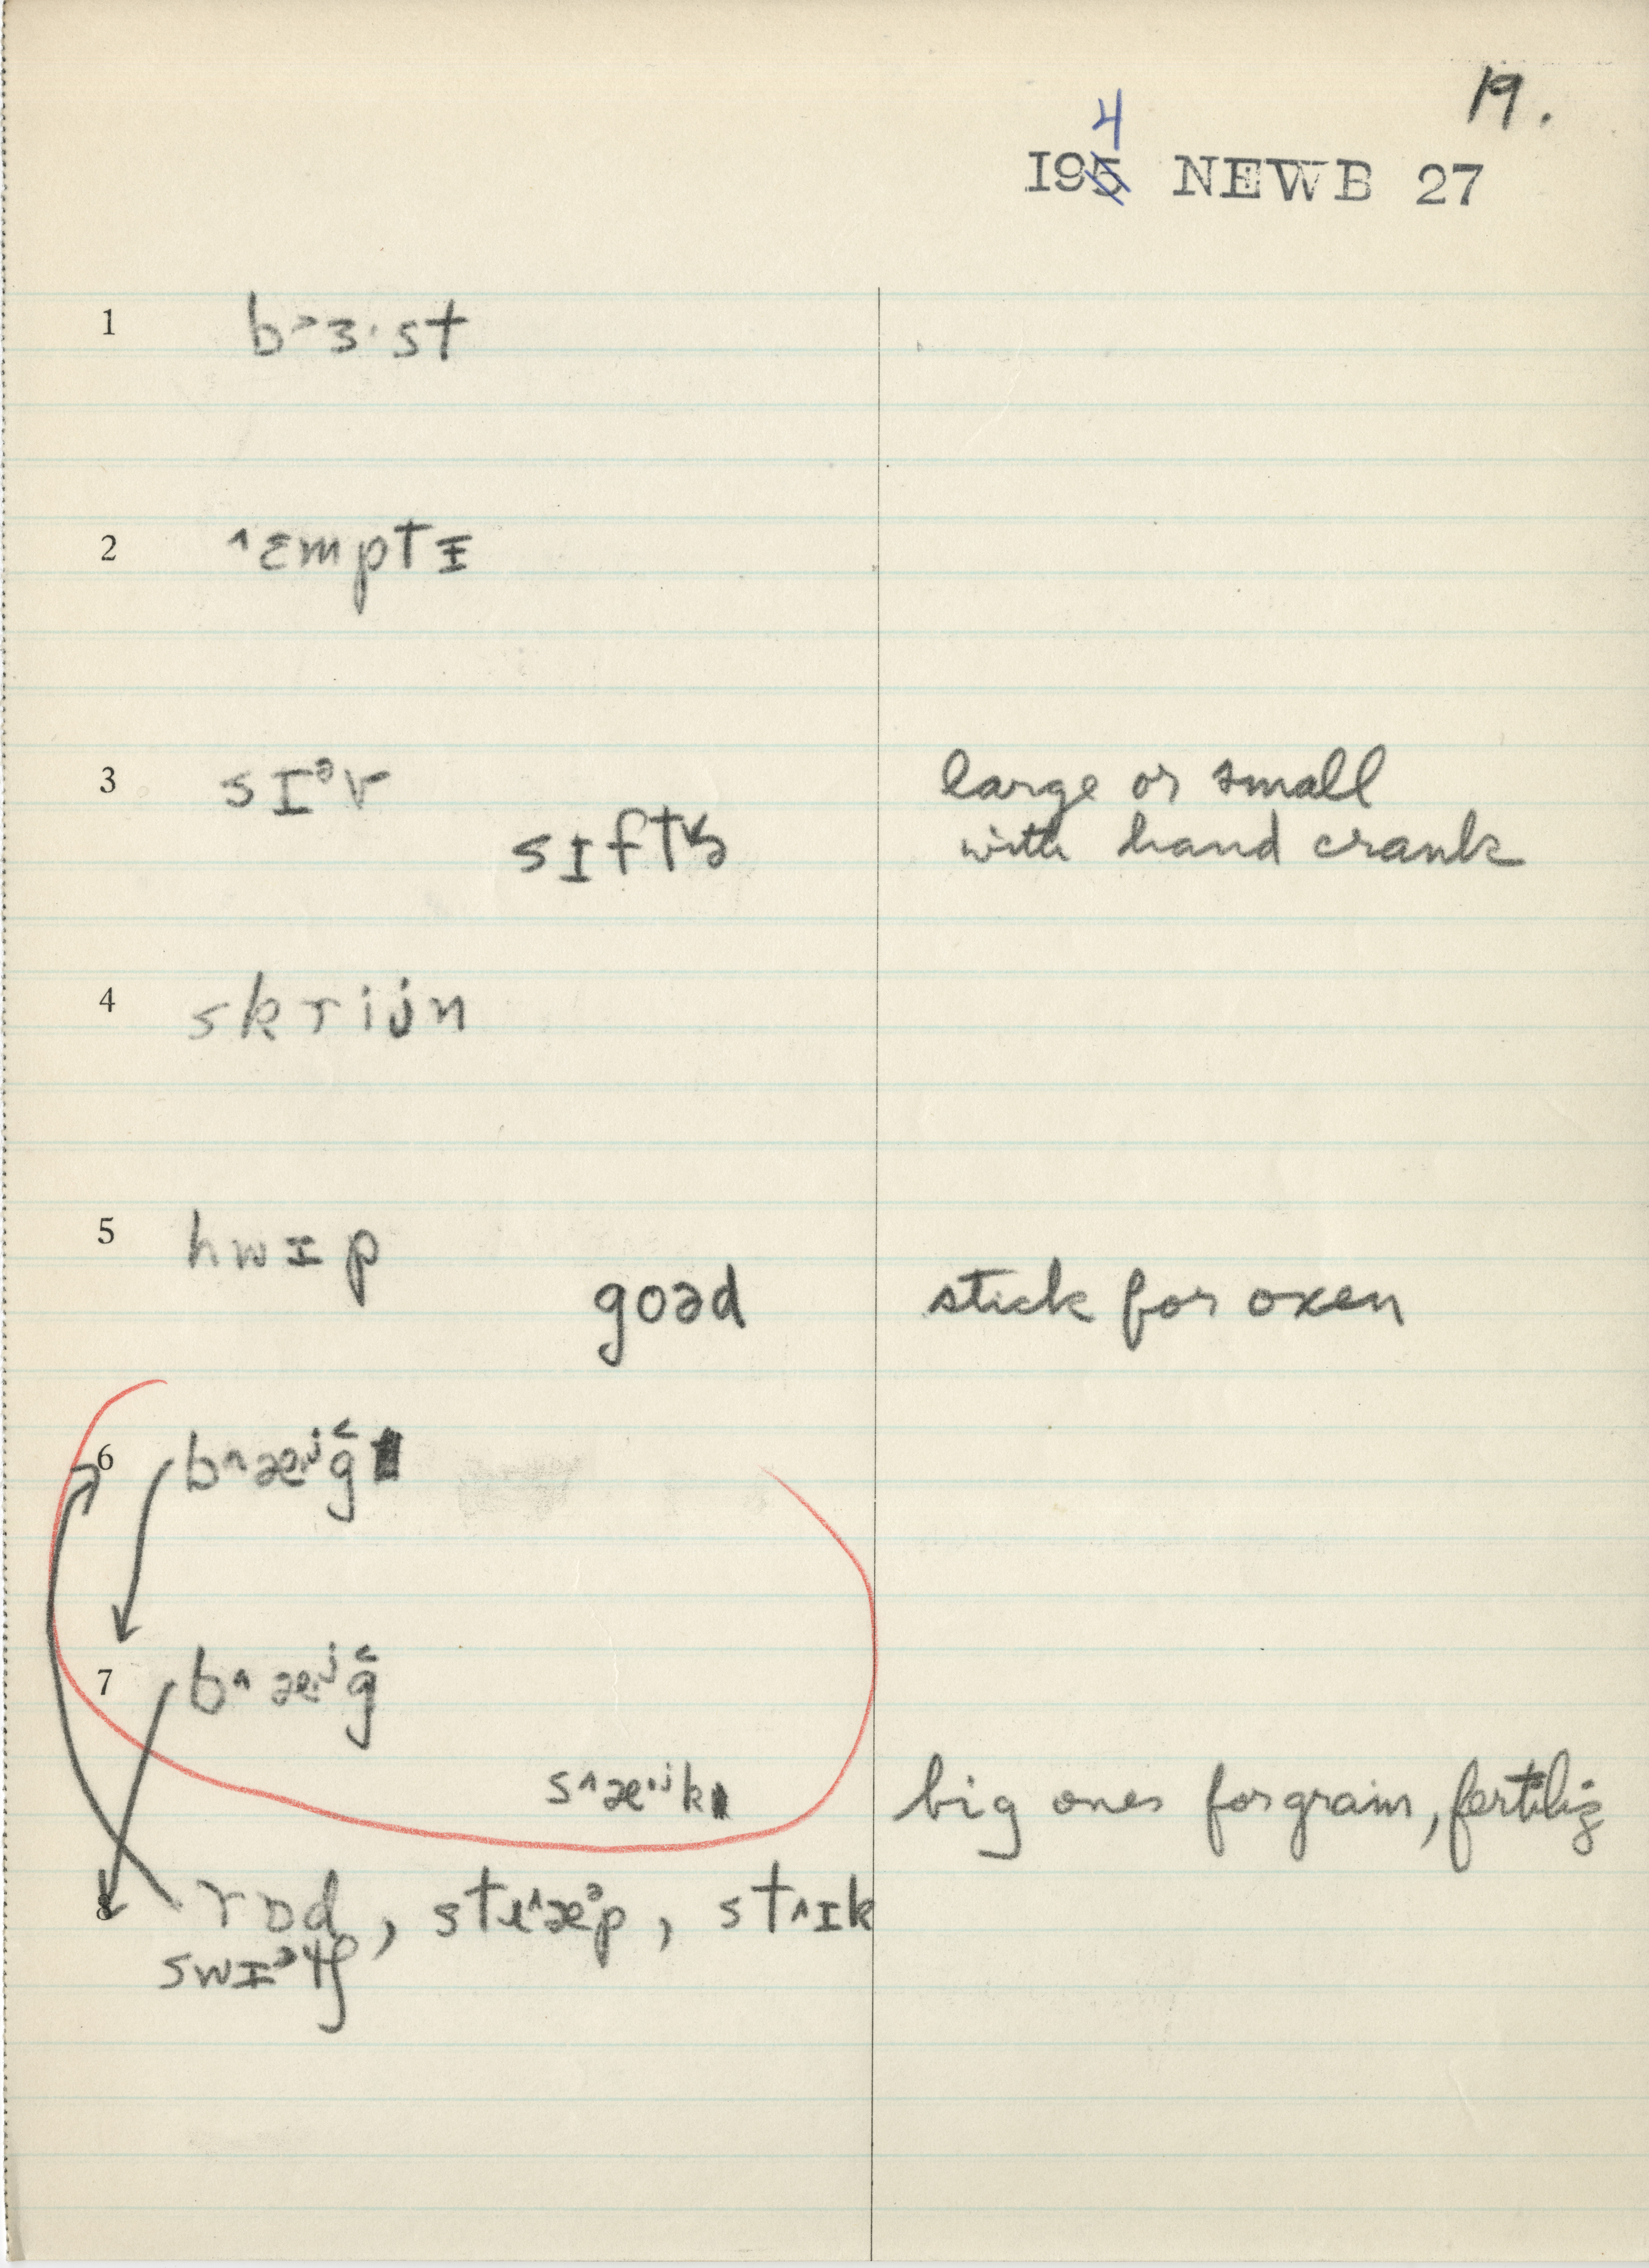 19.
4
195 NEWB 27
1 b˃ɜ·st
2 ˄ɛmptɪ
3 sɪᵊv large or small
sɪft with hand crank
4 skrijn
5 hwɪp
goəd stick for oxen
6 b˄æ·ʲg̑
7 b˄æ·ʲg̑
s˄æ·ʲk big ones for grain, fertiliz
8 rɒd, st˄æᵊp, st˄ɪk
swɪᵊ